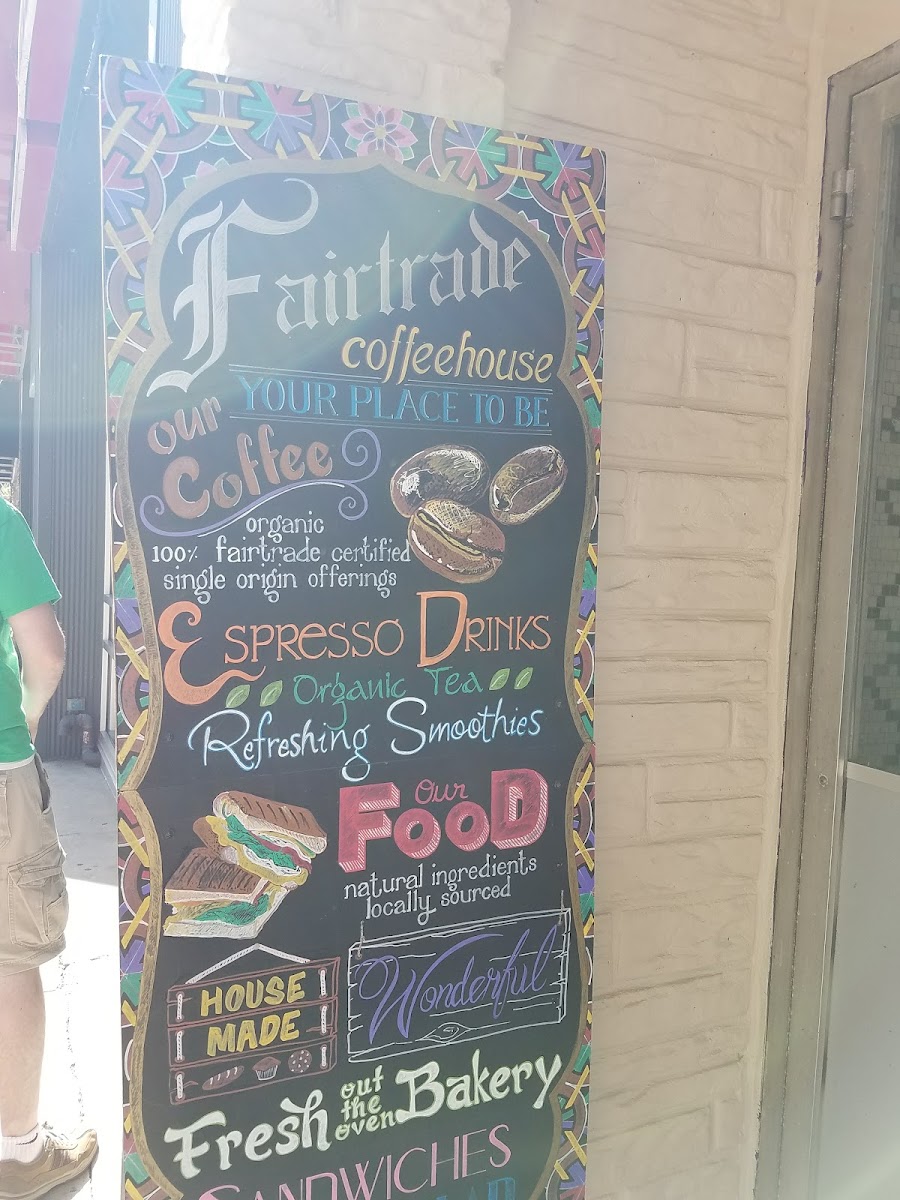 Fairtrade
coffeehouse
YOUR PLACE TO BE
our
Coffee
organic
100% fairtrade certified
single origin offerings
ESPRESSO DRINKS
Organic Tea
Refreshing Smoothies
Our
FOOD
natural ingredients
locally sourced
HOUSE
MADE
Wonderful
Fresh out the oven Bakery
SANDWICHES